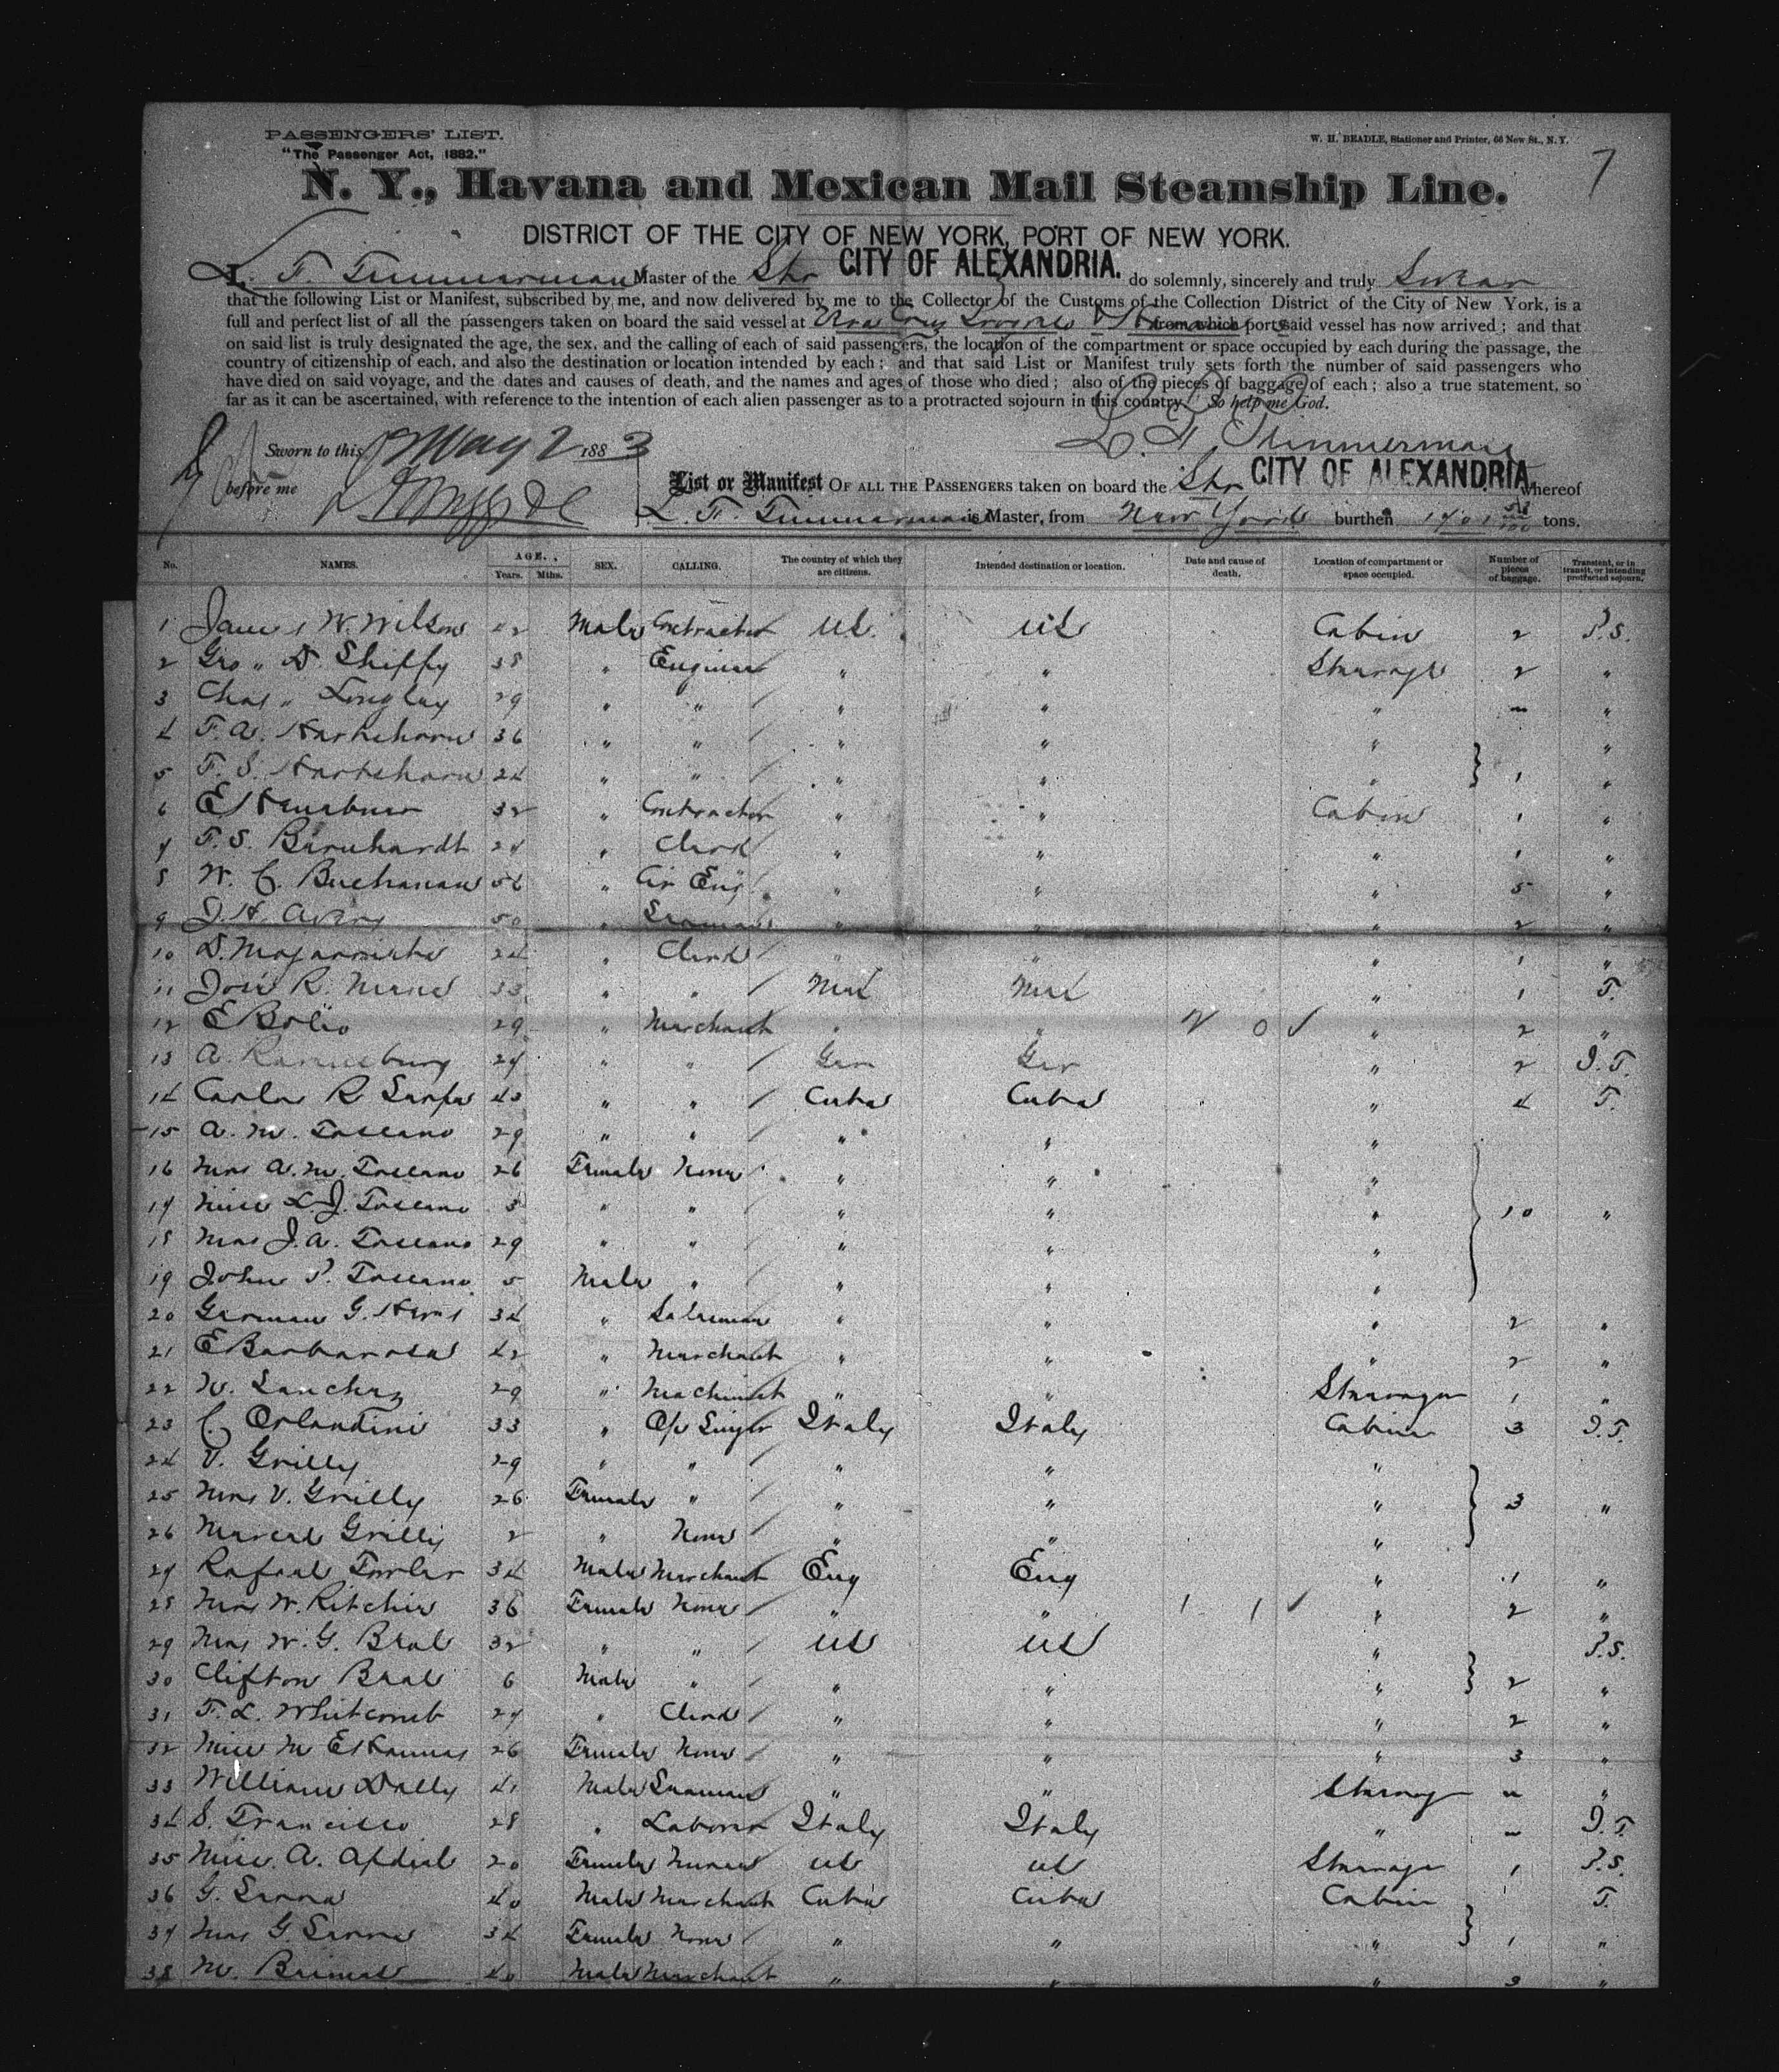 PASSENGERS' LIST.
"The Passenger Act, 1882."
W. H. BEADLE, Stationer and Printer, 66 New St., N. Y.
7
N. Y., Havana and Mexican Mail Steamship Line.
DISTRICT OF THE CITY OF NEW YORK, PORT OF NEW YORK.
I. F. Timmerman Master of the Str CITY OF ALEXANDRIA. do solemnly, sincerely and truly Swear
that the following List or Manifest, subscribed by me, and now delivered by me to the Collector of the Customs of the Collection District of the City of New York, is a
full and perfect list of all the passengers taken on board the said vessel at Vera Cruz from which port said vessel has now arrived; and that
on said list is truly designated the age, the sex, and the calling of each of said passengers, the location of the compartment or space occupied by each during the passage, the
country of citizenship of each, and also the destination or location intended by each; and that said List or Manifest truly sets forth the number of said passengers who
have died on said voyage, and the dates and causes of death, and the names and ages of those who died; also of the pieces of baggage of each; also a true statement, so
far as it can be ascertained, with reference to the intention of each alien passenger as to a protracted sojourn in this country. So help me God.
Sworn to this May 2 1883
L. F. Timmerman
before me
List or Manifest OF ALL THE PASSENGERS taken on board the Str CITY OF ALEXANDRIA whereof
L. F. Timmerman is Master, from New York burthen tons.
No. NAMES. AGE. Years. Mths. SEX. CALLING. The country of which they are citizens. Intended destination or location. Date and cause of death. Location of compartment or space occupied. Number of pieces of baggage. Transient, or in transit, or intending protracted sojourn.
1 James W. Wilson 42 Male Contractor US. US Cabin 2 P.S.
2 Geo " D. Shiffy 38 " Engineer " " Steerage 2 "
3 Chas " Longley 29 " " " " " "
4 F. A. Hartshorn 36 " " " " " "
5 F. S. Hartshorn 24 " " " " " 1 "
6 32 " Contractor " " Cabin 1 "
7 F. S. Barnhardt 27 " Clerk " " " 1 "
8 W. C. Buchanan 56 " Civ Eng " " " 5 "
9 J. H. Avery 50 " Seaman " " " 2 "
10 D. 24 " Clerk " " " 1 "
11 José R. 33 " " Mex Mex " 1 T.
12 E Bolio 29 " Merchant " " " 2 "
13 A. 27 " " Ger Ger " 2 I.T.
14 Carlos R 43 " " Cuba Cuba " 4 T.
15 A. M. Toscano 29 " " " " "
16 Mrs A. M. Toscano 26 Female None " " "
17 Miss L. J. Toscano 3 " " " " " 10 "
18 Mrs J. A. Toscano 29 " " " " "
19 John P. Toscano 5 Male " " " "
20 German G. 34 " Salesman " " " 2 "
21 E Barbarosa 42 " Merchant " " " 2 "
22 W. Sanchez 29 " Machinist " " Steerage 1 "
23 C. Orlandini 33 " Op Singer Italy Italy Cabin 3 I.T.
24 V. Grilly 29 " " " " "
25 Mrs V. Grilly 26 Female " " " " 3 "
26 Grilly 2 " None " " "
27 Rafael 34 Male Merchant Eng Eng " 1 "
28 Mrs W. Ritchie 36 Female None " " " 2 "
29 Mrs W. G. Beal 32 " " US US " P.S.
30 Clifton Beal 6 Male " " " " 2 "
31 F. L. Whitcomb 27 " Clerk " " " 2 "
32 Miss M 26 Female None " " " 3 "
33 William Dally 41 Male Seaman " " Steerage "
34 S. Francisco 28 " Laborer Italy Italy " I.T.
35 Miss. A. 20 Female US US Steerage 1 P.S.
36 G. Serra 40 Male Merchant Cuba Cuba Cabin T.
37 Mrs G Serra 34 Female None " " " 1 "
38 M. 40 Male Merchant " " " 3 "